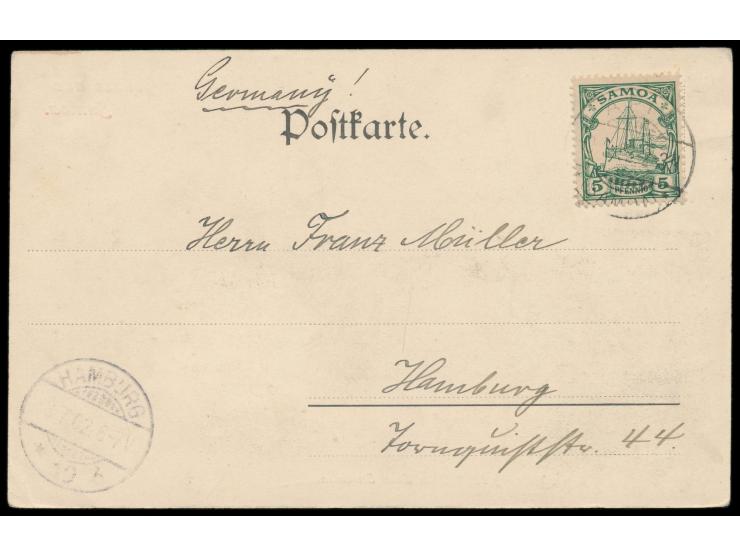 Germany!
Postkarte.
SAMOA
5 PFENNIG 5
Herrn Franz Müller
Hamburg
Tornquiststr. 44.
HAMBURG